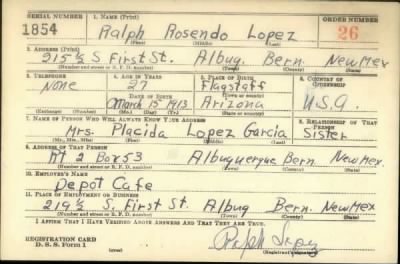 SERIAL NUMBER 1. NAME (Print) ORDER NUMBER
1854 Ralph Rosendo Lopez 26
(First) (Middle) (Last)
2. ADDRESS (Print)
215½ S First St. Albuq. Bern. New Mex
(Number and street or R. F. D. number) (Town) (County) (State)
3. TELEPHONE 4. AGE IN YEARS 5. PLACE OF BIRTH 6. COUNTRY OF CITIZENSHIP
None 27 Flagstaff
DATE OF BIRTH (Town or county)
March 15 1913 Arizona U.S.A.
(Exchange) (Number) (Mo.) (Day) (Yr.) (State or country)
7. NAME OF PERSON WHO WILL ALWAYS KNOW YOUR ADDRESS 8. RELATIONSHIP OF THAT PERSON
Mrs. Placida Lopez Garcia Sister
(Mr., Mrs., Miss) (First) (Middle) (Last)
9. ADDRESS OF THAT PERSON
Rt 2 Box 53 Albuquerque Bern. New Mex
(Number and street or R. F. D. number) (Town) (County) (State)
10. EMPLOYER'S NAME
Depot Cafe
11. PLACE OF EMPLOYMENT OR BUSINESS
219½ S. First St. Albuq Bern. New Mex
(Number and street or R. F. D. number) (Town) (County) (State)
I AFFIRM THAT I HAVE VERIFIED ABOVE ANSWERS AND THAT THEY ARE TRUE.
REGISTRATION CARD
D. S. S. Form 1 Ralph Lopez
(over) (Registrant's signature)